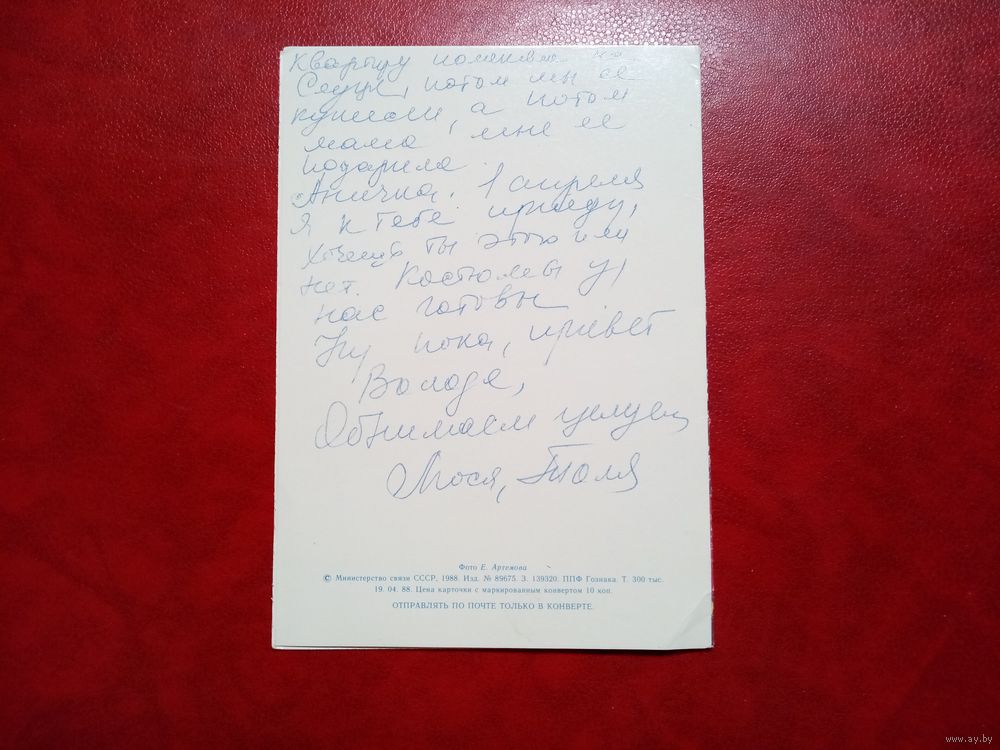 квартиру поменяли на
потом мы ее
купили, а потом
мама мне ее
подарила
Анечка. 1 апреля
я к тебе приеду,
хочешь ты этого или
нет. Костюмы у
нас готовы
Ну пока, привет
Володе,
Обнимаем целуем
Люся, Толя
Фото Е. Артемова
© Министерство связи СССР, 1988. Изд. № 89675. З. 139320. ППФ Гознака. Т. 300 тыс.
19. 04. 88. Цена карточки с маркированным конвертом 10 коп.
ОТПРАВЛЯТЬ ПО ПОЧТЕ ТОЛЬКО В КОНВЕРТЕ.
www.ay.by